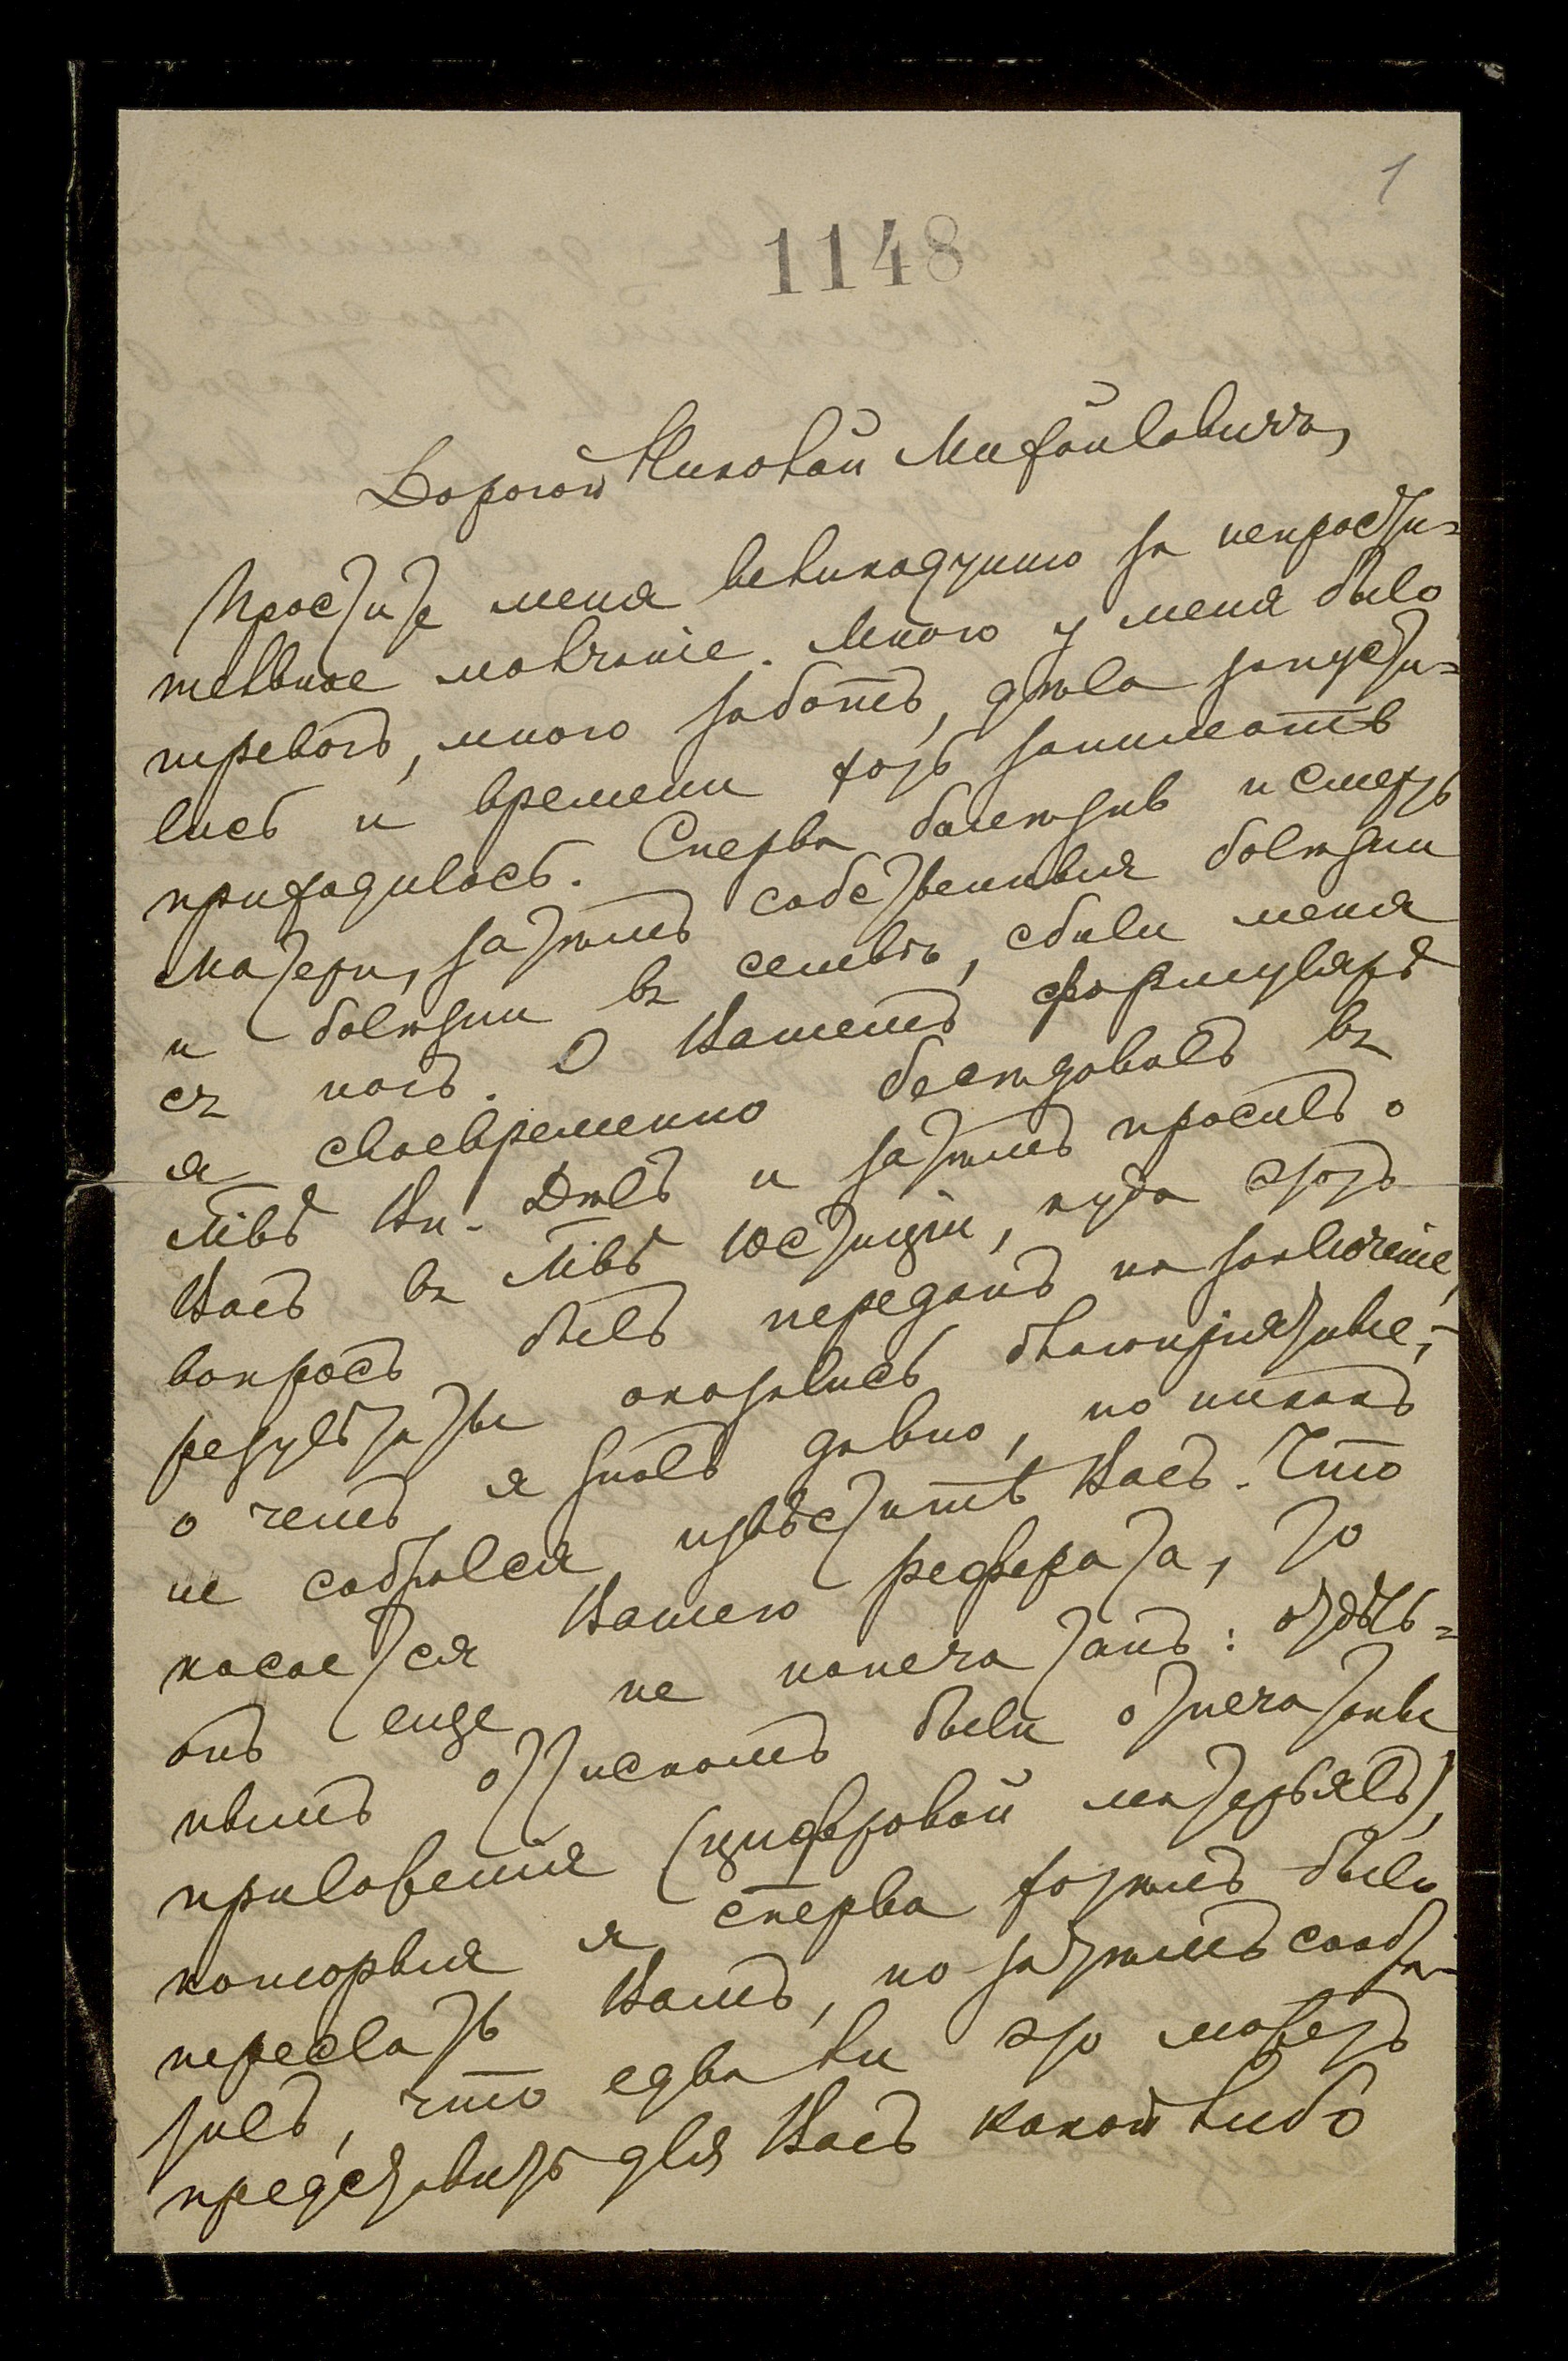 1
1148
Дорогой Николай Михайловичъ,
Простите меня великодушно за непрости=
тельное молчаніе. Много у меня было
тревогъ, много заботъ, дѣла запусти=
лись и времени хоть занимать
приходилось. Сперва болѣзнь и смерть
матери, затѣмъ собственныя болѣзни
и болѣзни въ семьѣ, сбили меня
съ ногъ. О Вашемъ формулярѣ
я своевременно бесѣдовалъ въ
М-вѣ Вн. Дѣлъ и затѣмъ просилъ о
Васъ въ М-вѣ Юстиціи, куда этотъ
вопросъ былъ переданъ на заключеніе,
результаты оказались благопріятные,-
о чемъ я зналъ давно, но никакъ
не собрался извѣстить Васъ. Что
касается Вашего реферата, то
онъ еще не напечатанъ: отдѣль=
нымъ оттискомъ были отпечатаны
приложенія (цифровой матерьялъ),
которыя я сперва хотѣлъ было
переслать Вамъ, но затѣмъ сообра-
зилъ, что едва ли это можетъ
представить для Васъ какой либо